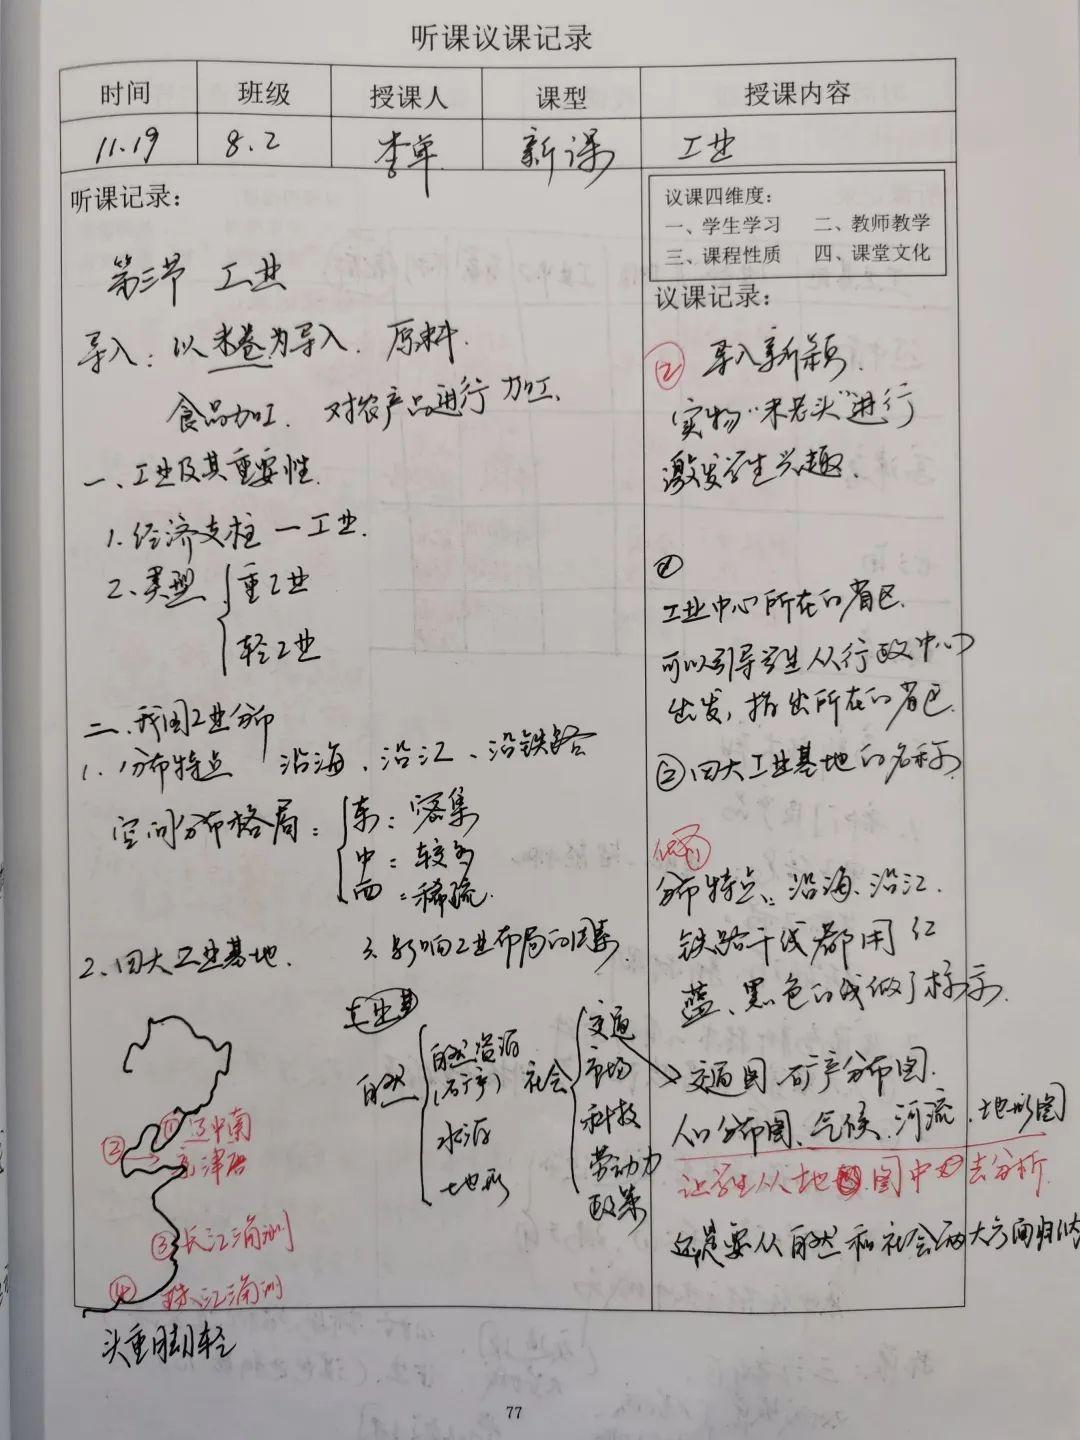 听课议课记录
时间 班级 授课人 课型 授课内容
11.19 8.2 李单 新课 工业
听课记录：
第三节 工业
导入：以米卷为导入. 原料.
食品加工. 对农产品进行加工.
一、工业及其重要性.
1.经济支柱—工业.
2.类型 { 重工业
轻工业
二、我国工业分布
1.分布特点 沿海、沿江、沿铁路
空间分布格局： { 东：密集
中：较多
西：稀疏.
2.四大工业基地.
①辽中南
②京津唐
③长江三角洲
④珠江三角洲
头重脚轻
3.影响工业布局的因素.
自然 { 自然资源
(矿产)
水源
土地形
社会 { 交通
市场
科技
劳动力
政策
议课四维度：
一、学生学习 二、教师教学
三、课程性质 四、课堂文化
议课记录：
② 导入新颖.
实物“米老头”进行
激发学生兴趣.
①
工业中心所在的省区.
可以引导学生从行政中心
出发，指出所在的省区.
②四大工业基地的名称.
①
分布特点：沿海、沿江.
铁路干线都用红
蓝、黑色的线做了标示.
交通图 矿产分布图.
人口分布图、气候、河流、地形图
让学生从地图中去分析.
还是要从自然和社会两大方面归纳
77